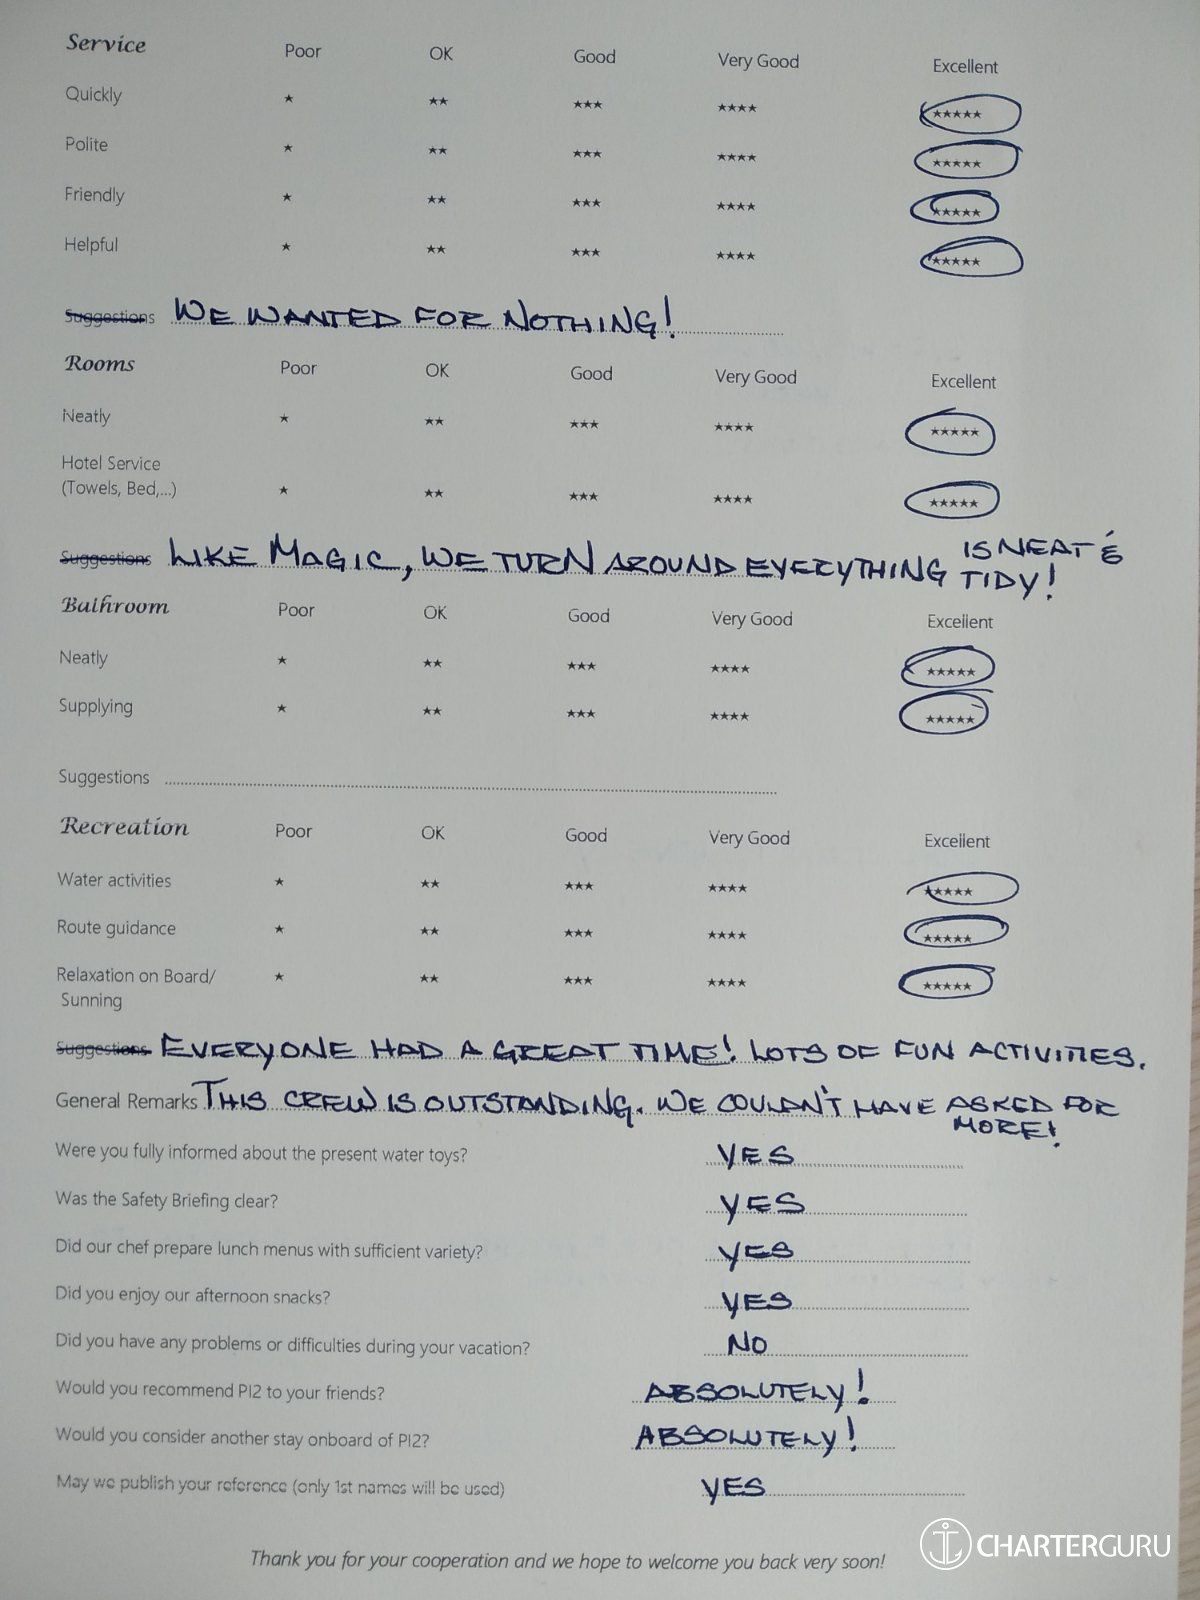 Service Poor OK Good Very Good Excellent
Quickly ★ ★★ ★★★ ★★★★ ★★★★★
Polite ★ ★★ ★★★ ★★★★ ★★★★★
Friendly ★ ★★ ★★★ ★★★★ ★★★★★
Helpful ★ ★★ ★★★ ★★★★ ★★★★★
Suggestions WE WANTED FOR NOTHING!
Rooms Poor OK Good Very Good Excellent
Neatly ★ ★★ ★★★ ★★★★ ★★★★★
Hotel Service
(Towels, Bed,...) ★ ★★ ★★★ ★★★★ ★★★★★
Suggestions LIKE MAGIC, WE TURN AROUND EVERYTHING IS NEAT &
TIDY!
Bathroom Poor OK Good Very Good Excellent
Neatly ★ ★★ ★★★ ★★★★ ★★★★★
Supplying ★ ★★ ★★★ ★★★★ ★★★★★
Suggestions
Recreation Poor OK Good Very Good Excellent
Water activities ★ ★★ ★★★ ★★★★ ★★★★★
Route guidance ★ ★★ ★★★ ★★★★ ★★★★★
Relaxation on Board/ ★ ★★ ★★★ ★★★★ ★★★★★
Sunning
Suggestions EVERYONE HAD A GREAT TIME! LOTS OF FUN ACTIVITIES.
General Remarks THIS CREW IS OUTSTANDING. WE COULDN'T HAVE ASKED FOR
MORE!
Were you fully informed about the present water toys? YES
Was the Safety Briefing clear? YES
Did our chef prepare lunch menus with sufficient variety? YES
Did you enjoy our afternoon snacks? YES
Did you have any problems or difficulties during your vacation? NO
Would you recommend PI2 to your friends? ABSOLUTELY!
Would you consider another stay onboard of PI2? ABSOLUTELY!
May we publish your reference (only 1st names will be used) YES
CHARTERGURU
Thank you for your cooperation and we hope to welcome you back very soon!